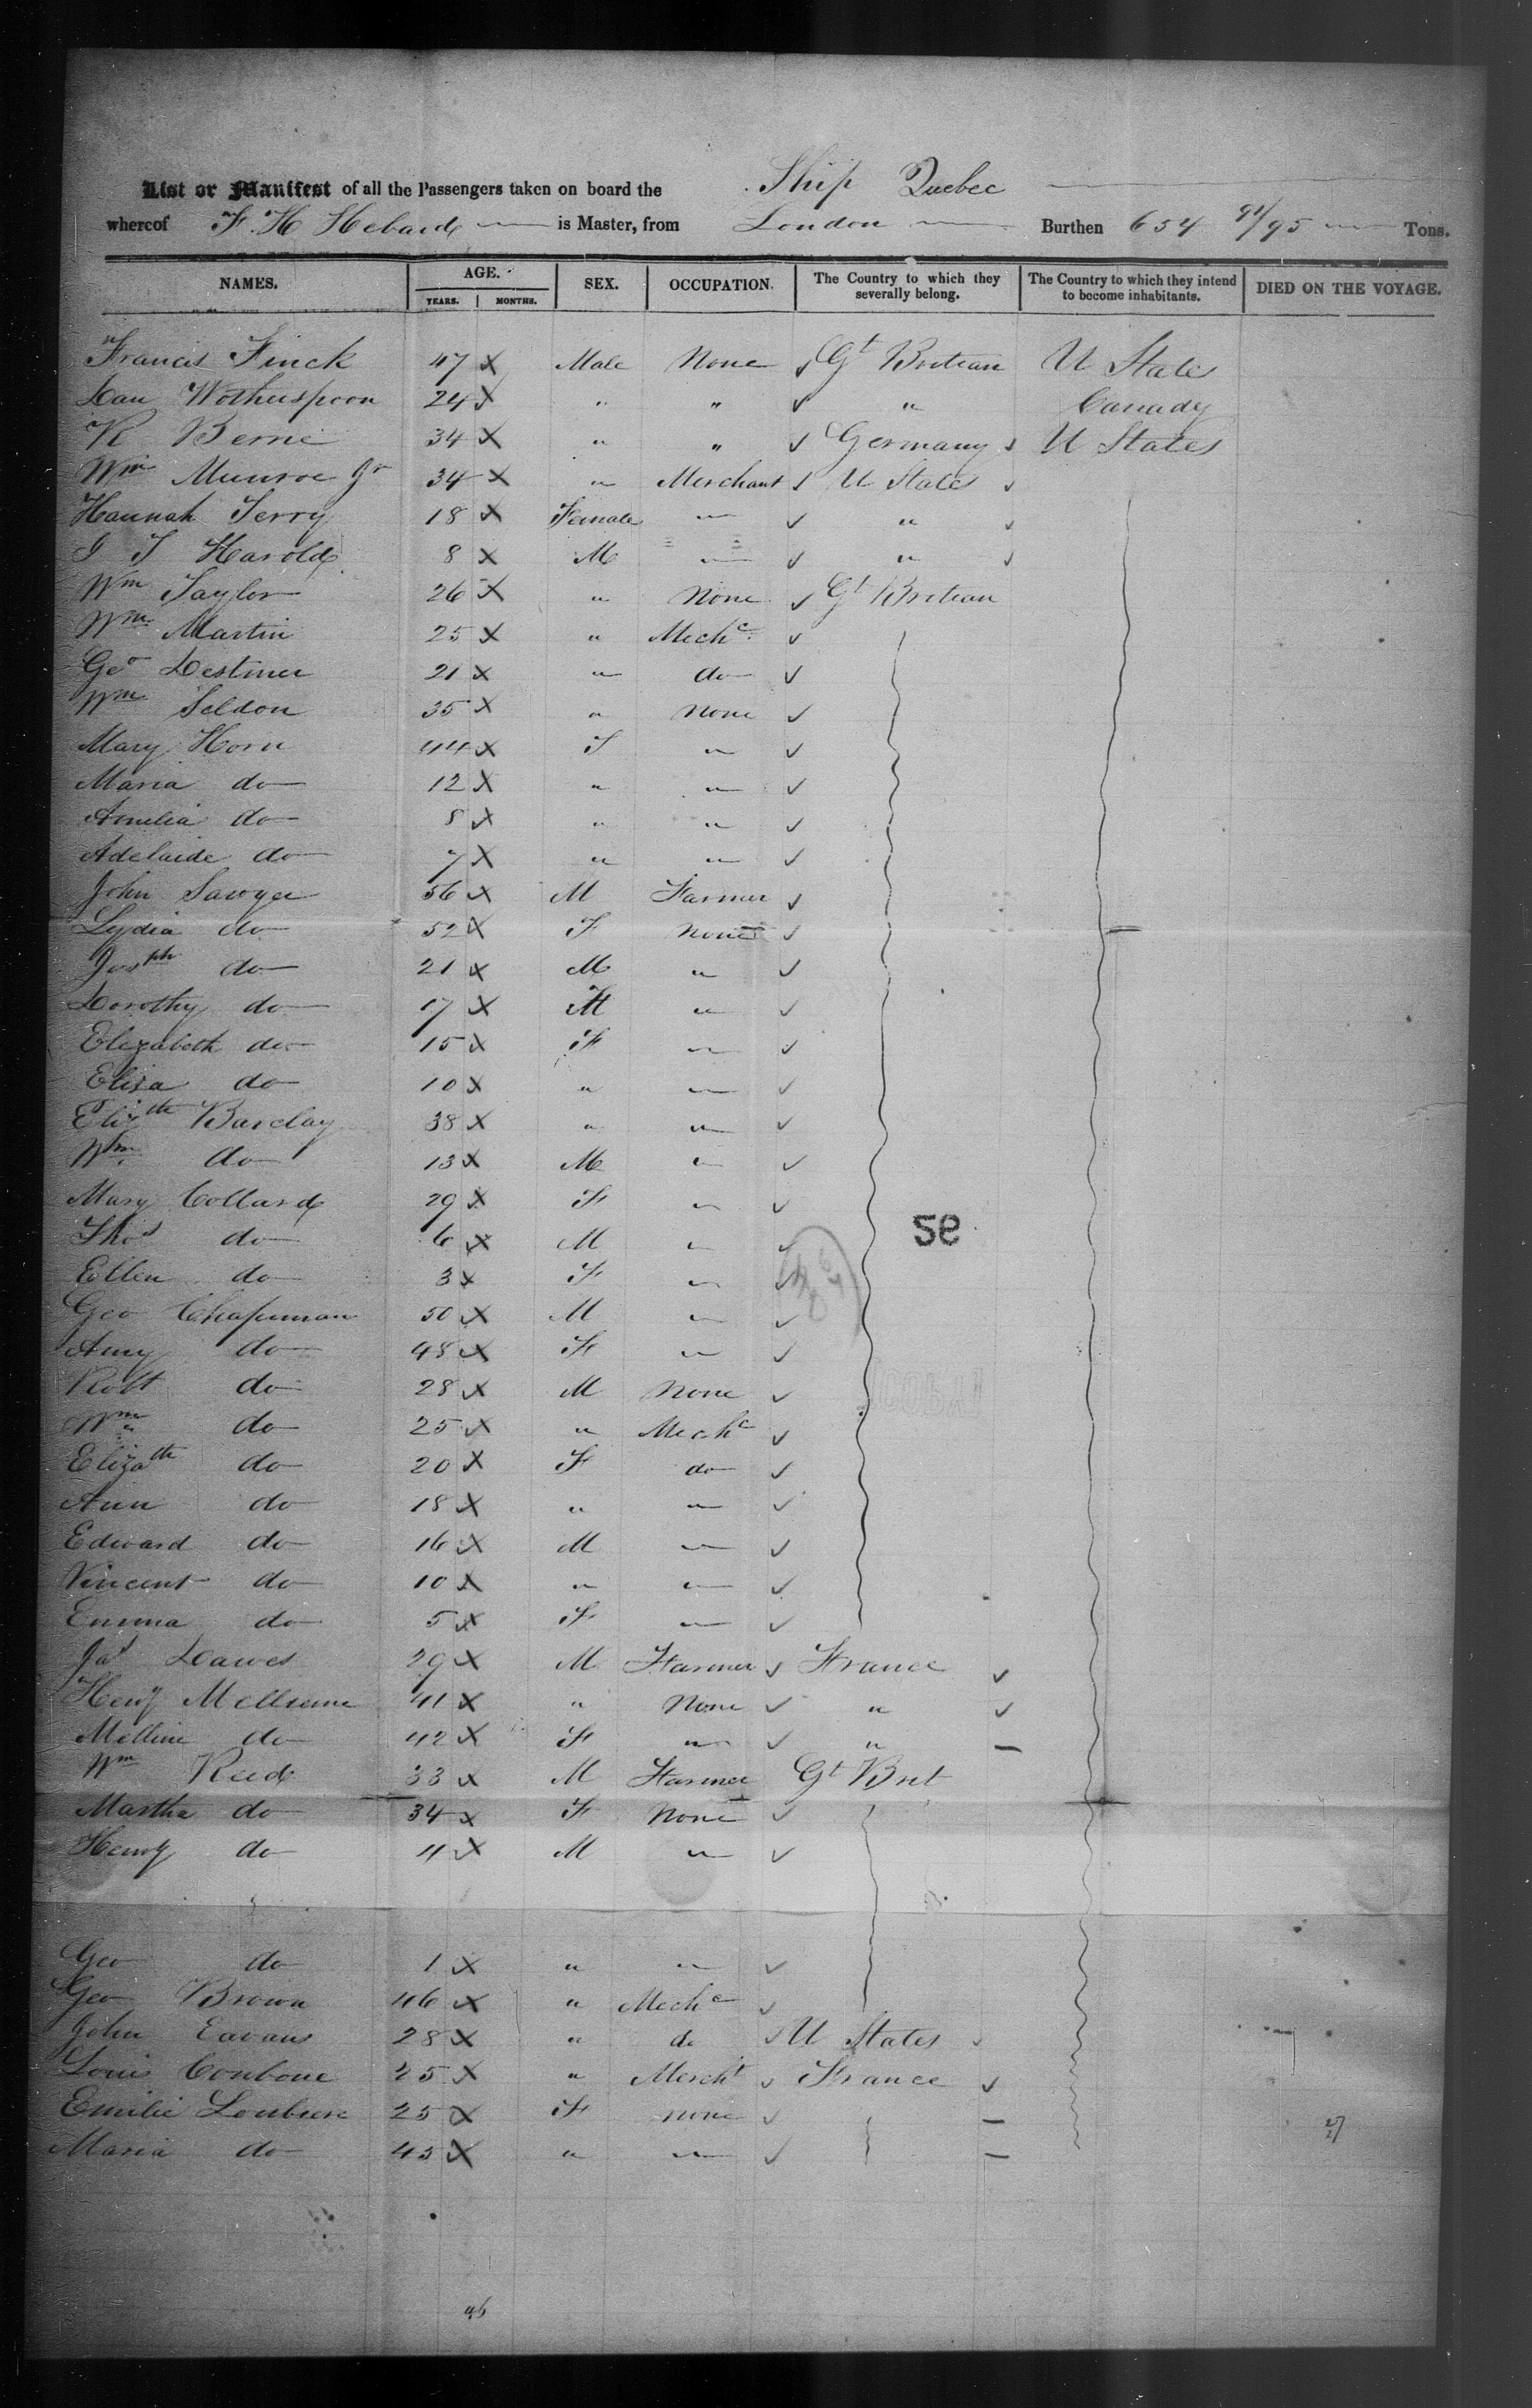 List or Manifest of all the Passengers taken on board the Ship Quebec
whereof F. H Hebard is Master, from London Burthen 654 91/95 Tons.
NAMES. AGE. YEARS. MONTHS. SEX. OCCUPATION. The Country to which they severally belong. The Country to which they intend to become inhabitants. DIED ON THE VOYAGE.
Francis Finck 47 X Male None ✓ Gt Britian U States
Dan Wotherspoon 24 X " " ✓ " Canady
R Berne 34 X " " ✓ Germany ✓ U States
Wm Munroe Jr 34 X " Merchant ✓ U States ✓
Hannah Terry 18 X Female " ✓ " ✓
J T Harold 8 X M " ✓ " ✓
Wm Taylor 26 X " None ✓ Gt Britian
Wm Martin 25 X " Mechc ✓
Geo Destiner 21 X " do ✓
Wm Seldon 35 X " None ✓
Mary Horn 44 X F " ✓
Maria do 12 X " " ✓
Amelia do 8 X " " ✓
Adelaide do 7 X " " ✓
John Sawyer 56 X M Farmer ✓
Lydia do 52 X F None ✓
Josph do 21 X M " ✓
Dorothy do 17 X F " ✓
Elizabeth do 15 X F " ✓
Eliza do 10 X " " ✓
Elizth Barclay 38 X " " ✓
Wm do 13 X M " ✓
Mary Collard 29 X F " ✓
Thos do 6 X M " ✓
Ellen do 3 X F " ✓
Geo Chapman 50 X M " ✓
Amy do 48 X F " ✓
Robt do 28 X M None ✓
Wm do 25 X " Mechc ✓
Elizath do 20 X F do ✓
Ann do 18 X " " ✓
Edward do 16 X M " ✓
Vincent do 10 X " " ✓
Emma do 5 X F " ✓
Jas Dawes 29 X M Farmer ✓ France ✓
Heny 41 X " None ✓ " ✓
Melline do 42 X F " ✓ " —
Wm Reed 33 X M Farmer Gt Brit
Martha do 34 X F None ✓
Henry do 4 X M " ✓
Geo do 1 X " " ✓
Geo Brown 46 X " Mechc ✓
John Eavans 28 X " do ✓ U States ✓
Louis Conbone 25 X " Mercht ✓ France ✓
Emilie Loubiere 25 X F none ✓ —
Maria do 45 X " " ✓ —
46